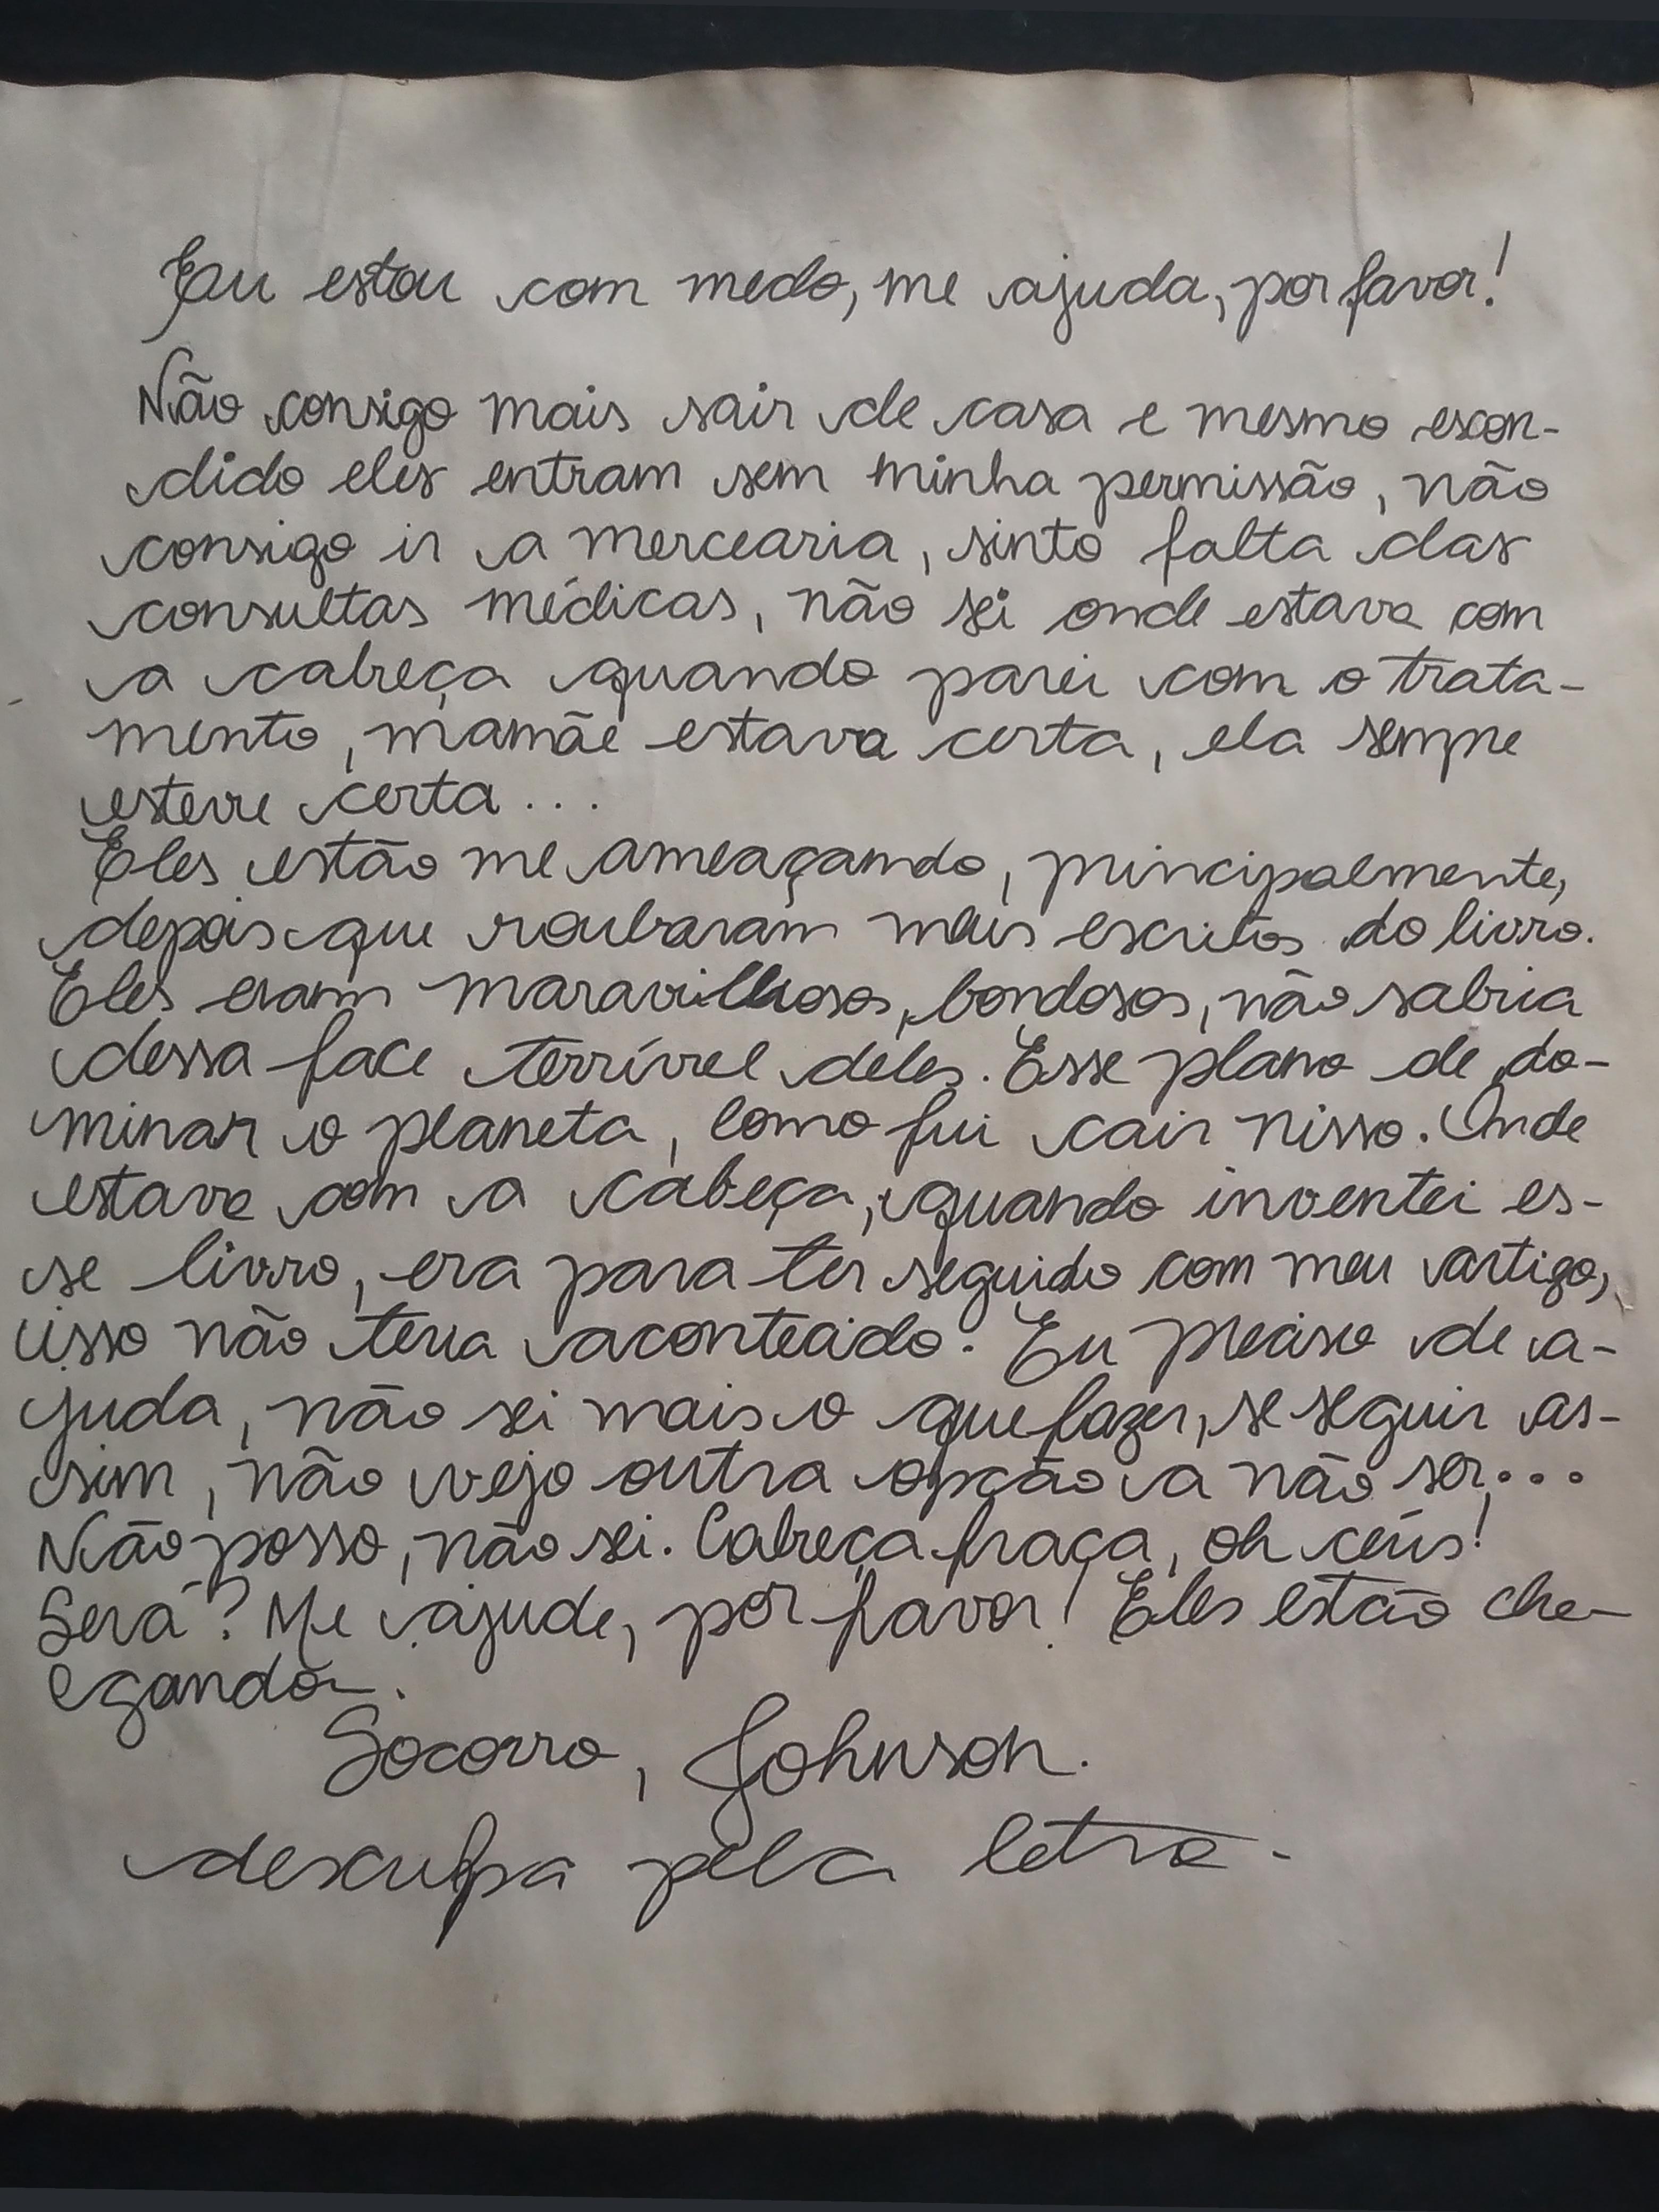 Eu estou com medo, me ajuda, por favor!
Não consigo mais sair de casa e mesmo escon-
dido eles entram sem minha permissão, não
consigo ir a mercearia, sinto falta das
consultas médicas, não sei onde estava com
a cabeça quando parei com o trata-
mento, mamãe estava certa, ela sempre
esteve certa...
Eles estão me ameaçando, principalmente,
depois que roubaram meus escritos do livro.
Eles eram maravilhosos, bondosos, não sabia
dessa face terrível deles. Esse plano de do-
minar o planeta, como fui cair nisso. Onde
estava com a cabeça, quando inventei es-
se livro, era para ter seguido com meu artigo,
isso não teria acontecido. Eu preciso de a-
juda, não sei mais o que fazer, se seguir as-
sim, não vejo outra opção a não ser...
Não posso, não sei. Cabeça fraca, oh céus!
Será? Me ajude, por favor! Eles estão che-
gando.
Socorro, Johnson.
desculpa pela letra.